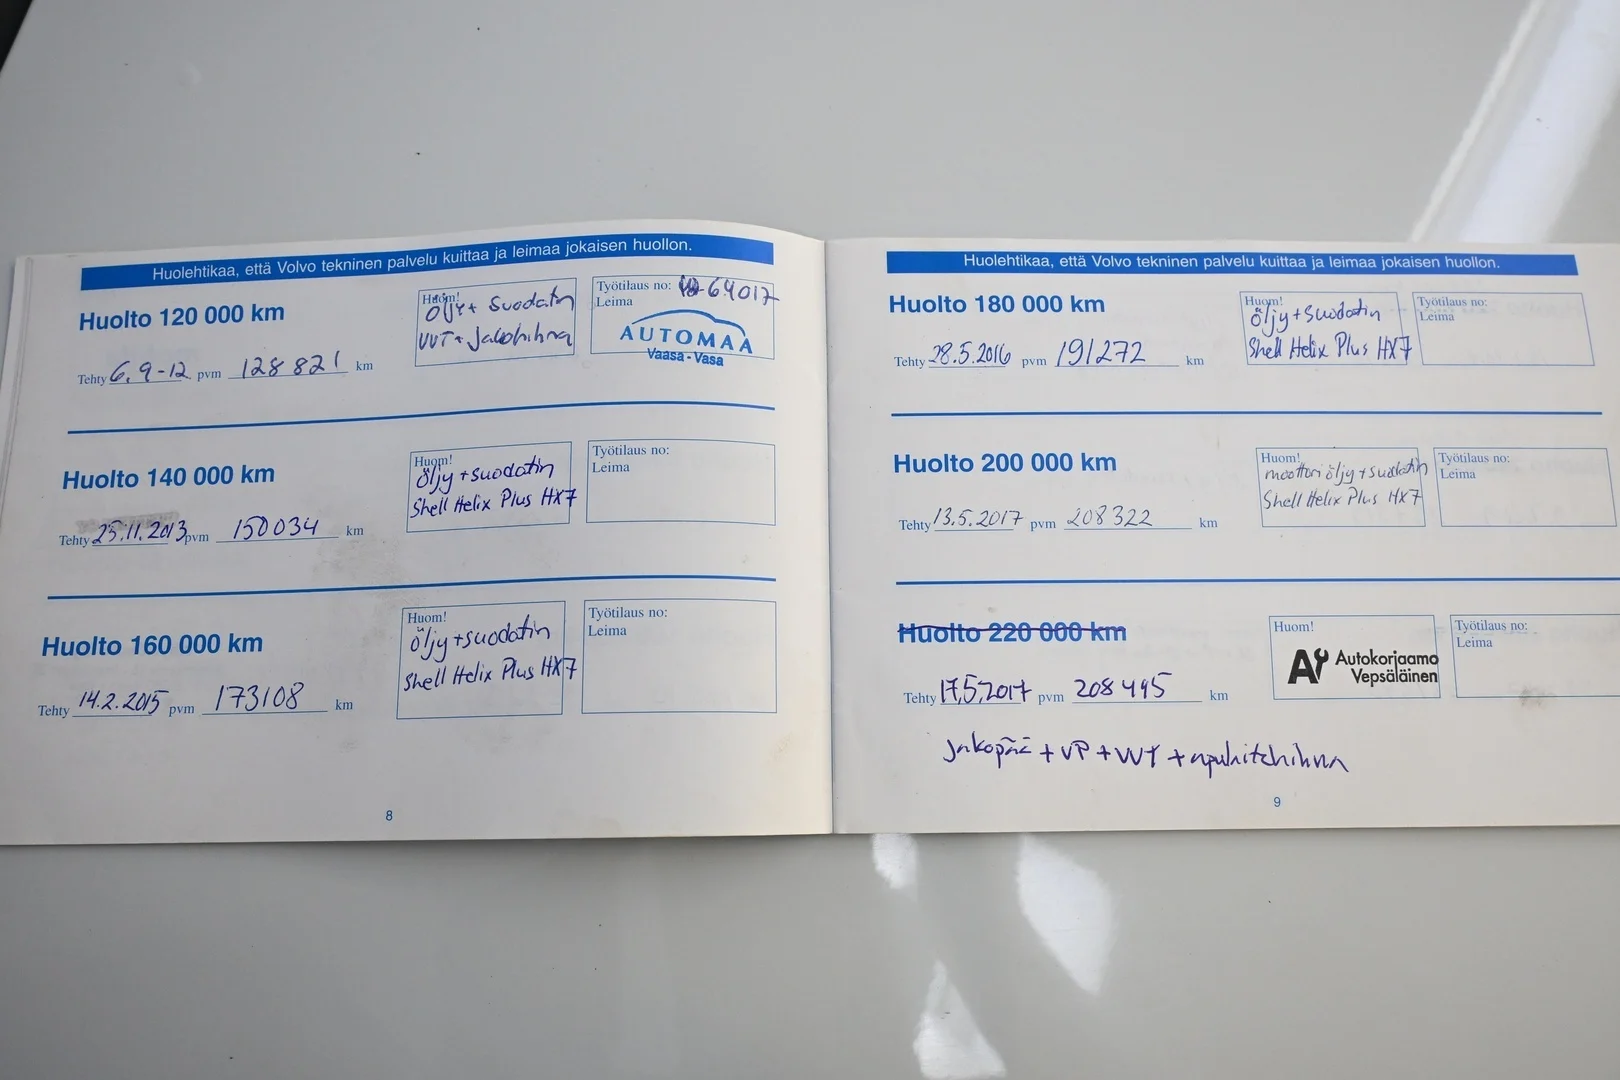 Huolehtikaa, että Volvo tekninen palvelu kuittaa ja leimaa jokaisen huollon.
Huolto 120 000 km
Tehty 6.9-12 pvm 128 821 km
Huom!
Öljy + Suodatin
VVT + Jakohihna
Työtilaus no: 69017
Leima
AUTOMAA
Vaasa - Vasa
Huolto 140 000 km
Tehty 25.11.2013 pvm 150034 km
Huom!
öljy + suodatin
Shell Helix Plus HX7
Työtilaus no:
Leima
Huolto 160 000 km
Tehty 14.2.2015 pvm 173108 km
Huom!
öljy + suodatin
Shell Helix Plus HX7
Työtilaus no:
Leima
8
Huolehtikaa, että Volvo tekninen palvelu kuittaa ja leimaa jokaisen huollon.
Huolto 180 000 km
Tehty 28.5.2016 pvm 191272 km
Huom!
öljy + suodatin
Shell Helix Plus HX7
Työtilaus no:
Leima
Huolto 200 000 km
Tehty 13.5.2017 pvm 208322 km
Huom!
moottoriöljy + suodatin
Shell Helix Plus HX7
Työtilaus no:
Leima
Huolto 220 000 km
Tehty 17.5.2017 pvm 208495 km
Huom!
AV Autokorjaamo
Vepsäläinen
Työtilaus no:
Leima
Jakopää + VP + VVT + apulaitehihna
9